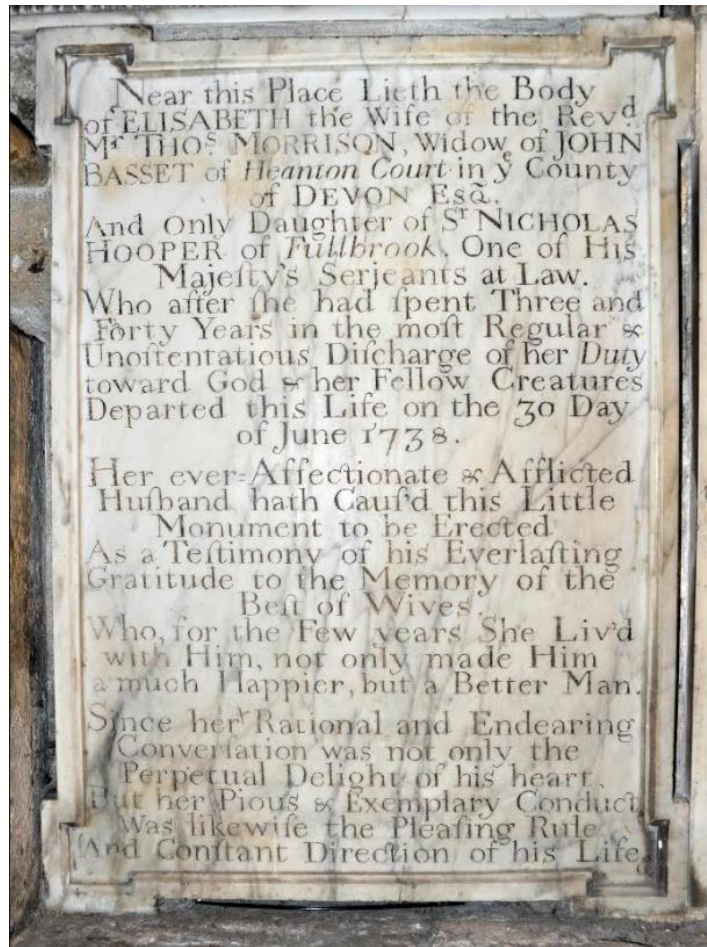 Near this Place Lieth the Body
of ELISABETH the Wife of the Revᵈ.
Mʳ THOˢ. MORRISON, Widow of JOHN
BASSET of Heanton Court in yᵉ County
of DEVON Esq̃.
And Only Daughter of Sʳ NICHOLAS
HOOPER of Fullbrook. One of His
Majeſty's Serjeants at Law.
Who after ſhe had ſpent Three and
Forty Years in the moſt Regular &
Unoſtentatious Diſcharge of her Duty
toward God & her Fellow Creatures
Departed this Life on the 30 Day
of June 1738.
Her ever=Affectionate & Afflicted
Huſband hath Cauſ'd this Little
Monument to be Erected
As a Teſtimony of his Everlaſting
Gratitude to the Memory of the
Beſt of Wives.
Who, for the Few years She Liv'd
with Him, not only made Him
a much Happier, but a Better Man.
Since her Rational and Endearing
Converſation was not only the
Perpetual Delight of his heart,
But her Pious & Exemplary Conduct
Was likewiſe the Pleaſing Rule
And Conſtant Direction of his Life.